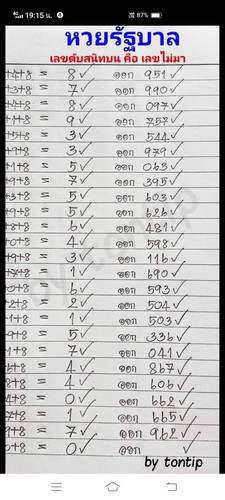 19:15 น.
87%
หวยรัฐบาล
เลขดับสนิทบน คือ เลขไม่มา
+4+8 = 8✓ ออก 951✓
+3+8 = 7✓ ออก 990✓
+4+8 = 8✓ ออก 097✓
+1+8 = 9✓ ออก 757✓
+5+8 = 3✓ ออก 544✓
+8 = 3✓ ออก 979✓
+1+8 = 5✓ ออก 063✓
+9+8 = 7✓ ออก 395✓
+3+8 = 5✓ ออก 603✓
+9+8 = 5✓ ออก 626✓
+8+8 = 6✓ ออก 481✓
+0+8 = 4✓ ออก 598✓
+9+8 = 3✓ ออก 116✓
+7+8 = 1✓ ออก 690✓
+0+8 = 6✓ ออก 593✓
+2+8 = 2✓ ออก 504✓
+1+8 = 1✓ ออก 503✓
+9+8 = 5✓ ออก 336✓
+1+8 = 7✓ ออก 041✓
+8 = 4✓ ออก 867✓
+8 = 4✓ ออก 606✓
+4+8 = 0✓ ออก 662✓
+8 = 1✓ ออก 665✓
+8 = 7✓ ออก 962✓
+8 = 0✓ ออก ✓
by tontip
by tontip